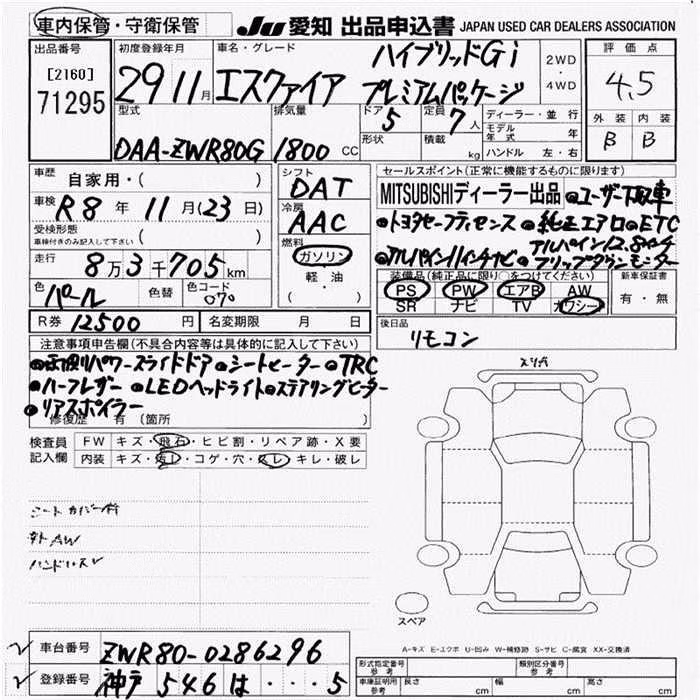 車内保管・守衛保管 JU 愛知 出品申込書 JAPAN USED CAR DEALERS ASSOCIATION
出品番号 初度登録年月 車名・グレード ハイブリッドGi 2WD・4WD 評価点
[2160] 71295 29 11月 エスクァイア プレミアムパッケージ 4.5
型式 排気量 ドア 5 定員 7人 ディーラー・並行 外装 内装
形状 積載 kg モデル年式 年 B B
DAA-ZWR80G 1800 CC ハンドル 左・右
車歴 自家用・( ) シフト DAT セールスポイント(正常に機能するものに限ります)
MITSUBISHIディーラー出品 ●ユーザー下取車
車検 R8年 11月(23日) 冷房 AAC
●トヨタセーフティセンス ●純正エアロ ●ETC
受検形態 ( )
車検付きのみ記入して下さい
燃料 ガソリン・軽油・( )
●アルパイン11インチナビ ●アルパイン12.8インチフリップダウンモニター
走行 8万3千705km
装備品(純正品に限り○をつけてください) 新車保証書
PS PW エアB AW 有・無
SR ナビ TV カワシート
色 パール 色替 色コード 070
R券 12500円 名変期限 月 日 後日品 リモコン
注意事項申告欄(不具合内容等は具体的に記入して下さい)
●両側パワースライドドア ●シートヒーター ●TRC
●ハーフレザー ●LEDヘッドライト ●ステアリングヒーター
●リアスポイラー
修復歴 有 (箇所
検査員記入欄 FW キズ・飛石・ヒビ割・リペア跡・X要
内装 キズ・汚レ・コゲ・穴・スレ・キレ・破レ
シートカバー付
スペア
A-キズ E-エクボ U-凹み W-補修跡 S-サビ C-腐食 XX-交換済
車台番号 ZWR80-0286296
登録番号 神戸 546 は ・・・5
形式指定番号 参考 類別区分番号 参考
車庫証明用 参考 長さ cm 幅 cm 高さ cm